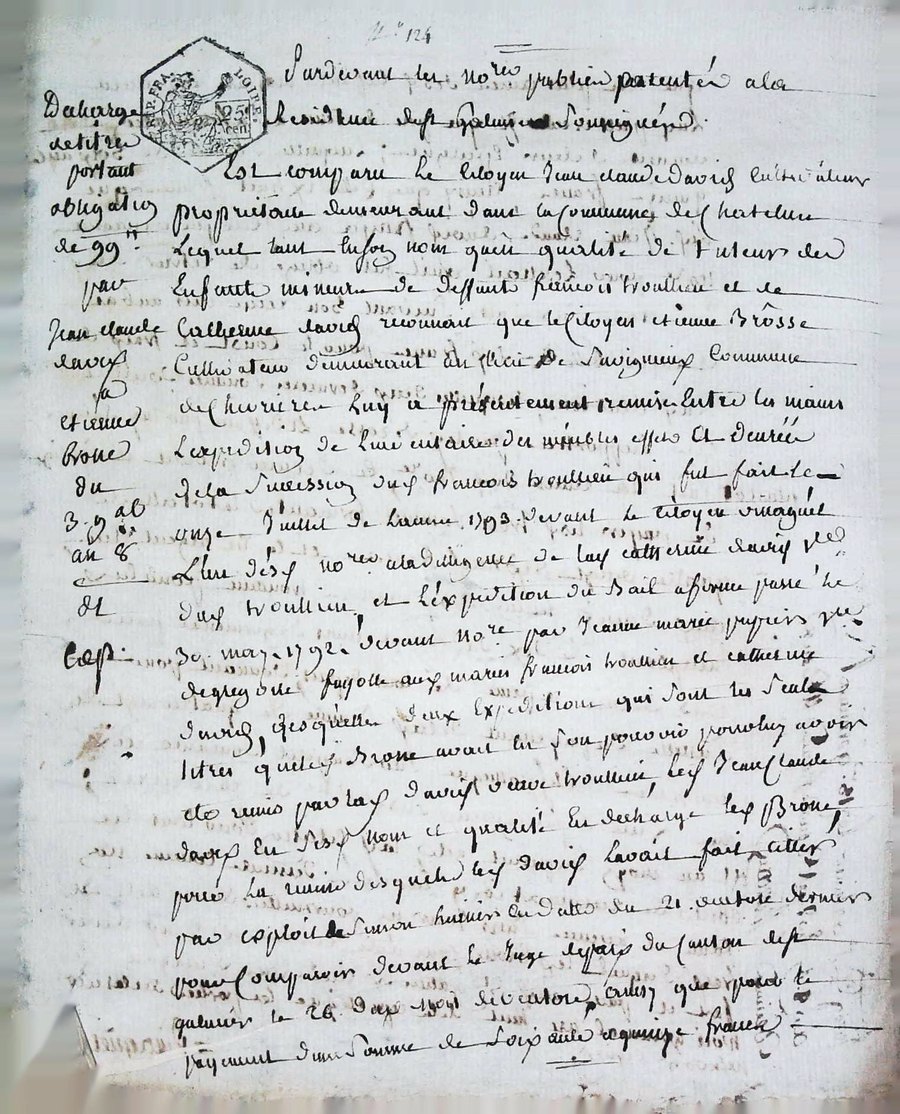 N° 124
Pardevant les no.res publics patentés a la
Residence de St Galmier soussignés
Est comparu le Citoyen Jean claude david Cultivateur
propriétaire demeurant dans la Commune de Chatelus
Lequel tant En son nom qu'en qualité de tuteur des
Enfants mineurs de deffunts francois troullieu et de
Catherine david reconnait que le Citoyen etienne Brosse
Cultivateur demeurant au lieu de Savigneux Commune
de Chevrieres Luy a présentement remis Entre les mains
L'expedition de L'inventaire des meubles effets Et denrées
de la Succession dud francois troullieu qui fut fait le
onze Juillet de L'année 1793 devant le Citoyen
L'un desd no.res a la diligence de lad Catherine david v.e
dud troullieu, et L'éxpedition du Bail a ferme passé le
30. may. 1792. devant no.re par Jeanne marie v.e
de gregoire fayolle aux mariés francois troullieu et catherine
david, Lesquelles deux Expeditions qui sont les Seuls
titres que led Brosse avait En Son pouvoir pour luy avoir
eté remis par lad david veuve troullieu, led Jean Claude
david En Sesd nom et qualité En décharge led Brosse
pour La remise desquels led david L'avait fait citter
par exploit de Simon huissier En datte du 21. vendose dernier
pour Comparoir devant le Juge de paix du Canton de St
galmier le 26 dud mois de ventose, ainsy que pour le
payement d'une Somme de Soixante quinze francs
Decharge
de titres
portant
obligation
de 99.tt
par
Jean claude
david
a
etienne
Brosse
du
3. 9.al
an 8
dt
Exp.
REP. FRA.
LOIRE
25
cen